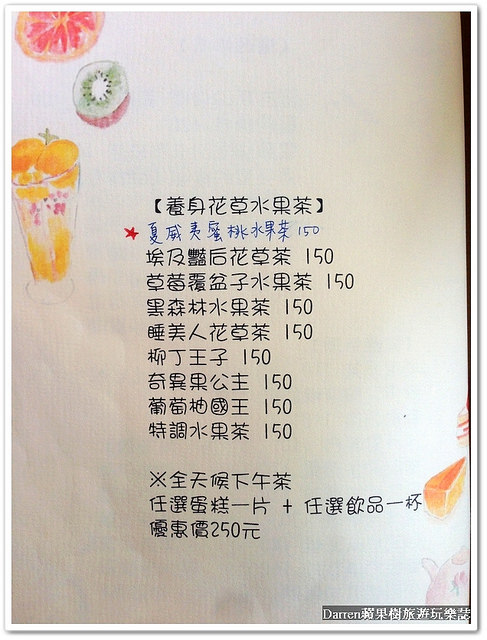 【養身花草水果茶】
夏威夷蜜桃水果茶 150
埃及豔后花草茶 150
草莓覆盆子水果茶 150
黑森林水果茶 150
睡美人花草茶 150
柳丁王子 150
奇異果公主 150
葡萄柚國王 150
特調水果茶 150
※全天候下午茶
任選蛋糕一片 + 任選飲品一杯
優惠價250元
Darren蘋果樹旅遊玩樂誌